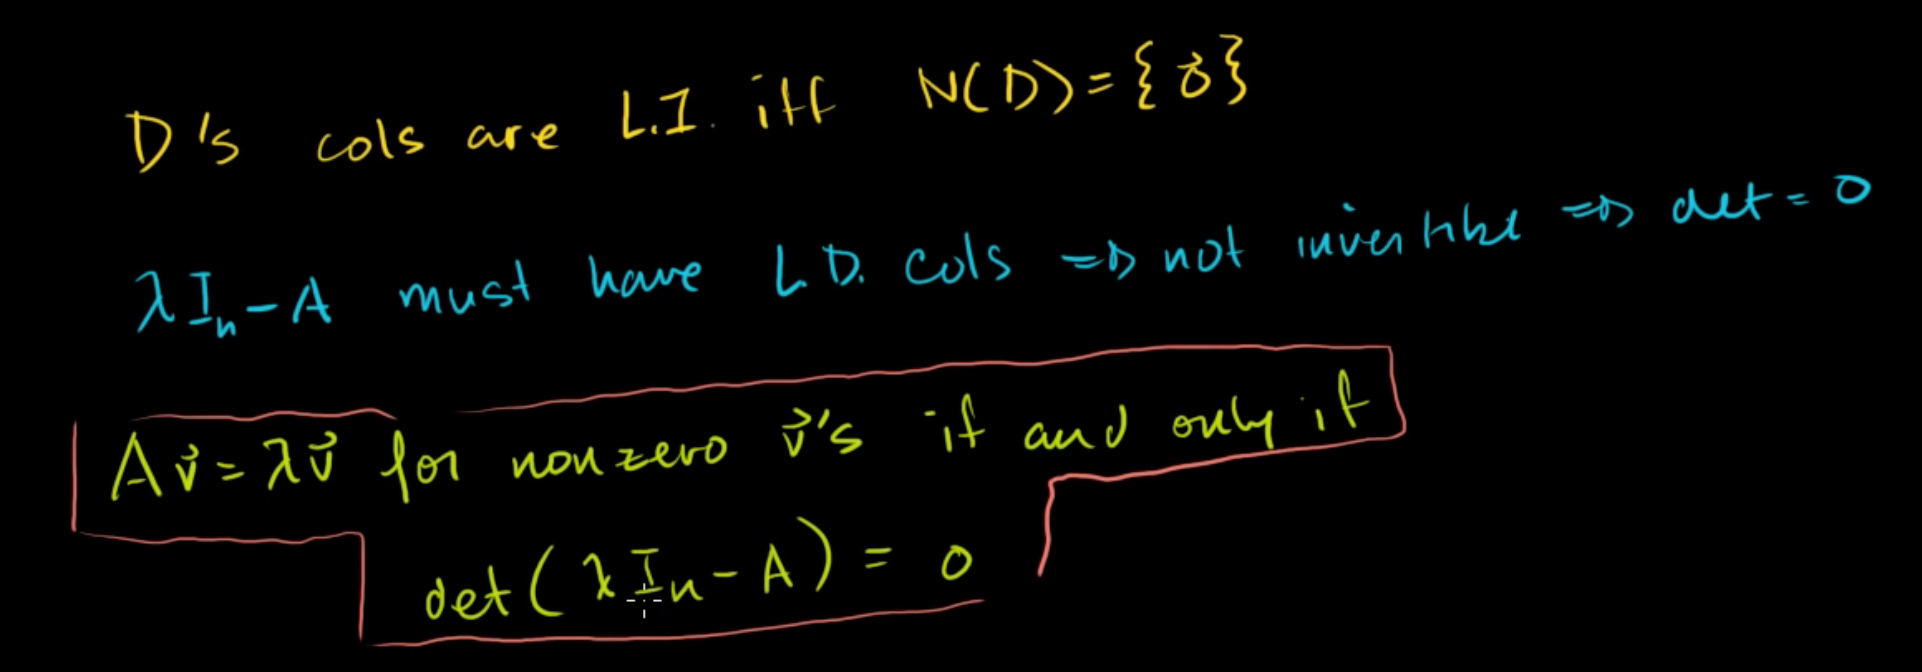 D's cols are L.I. iff N(D) = {0⃗}
λI_n - A must have L.D. cols ⇒ not invertible ⇒ det = 0
Av⃗ = λv⃗ for nonzero v⃗'s if and only if
det(λI_n - A) = 0